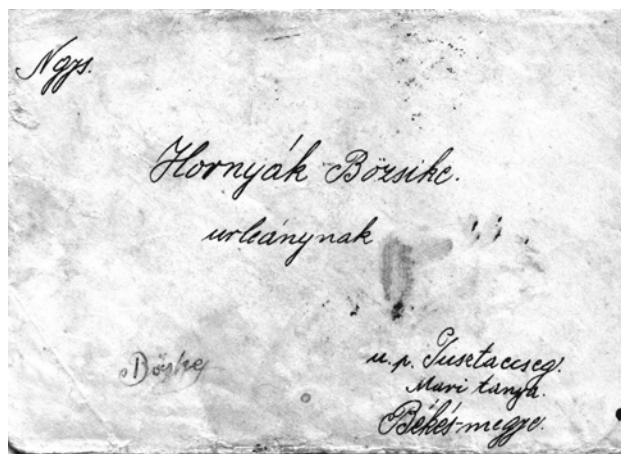 Ngys.
Hornyák Bözsike.
urleánynak
u. p. Pusztacseg.
Mari tanya.
Békés-megye.